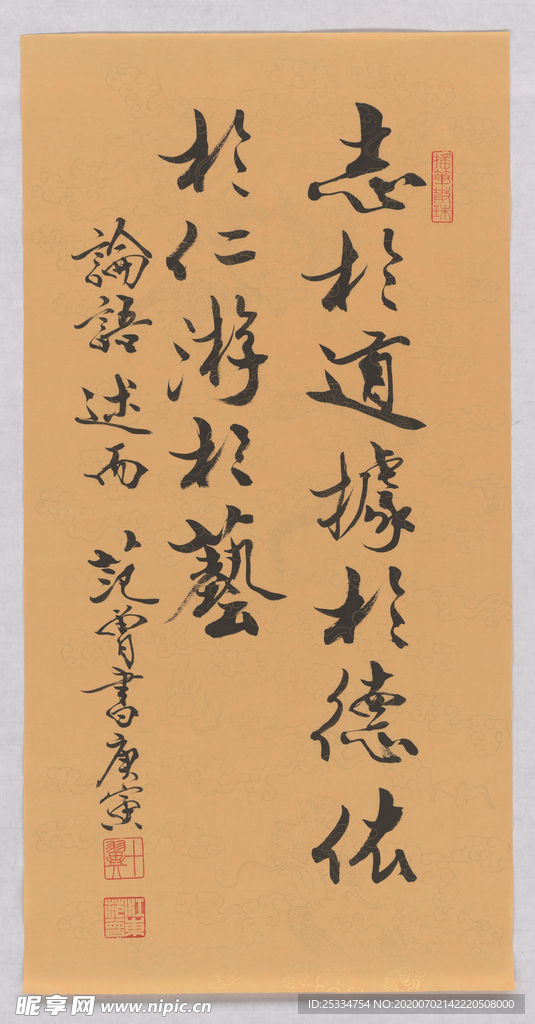 志於道據於德依
於仁游於藝
論語述而 范曾書庚寅
摇筆散珠
十翼
江東范曾
昵享网 www.nipic.cn
ID:25334754 NO:20200702142220508000